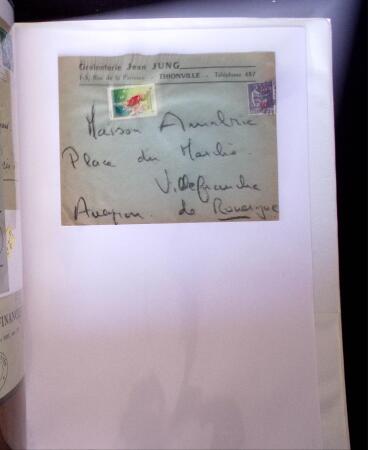 Grainterie Jean JUNG
1-3, Rue de la Paroisse - THIONVILLE - Téléphone 487
Maison
Place du Marché.
Villefranche
Aveyron. de Rouergue
FINANC